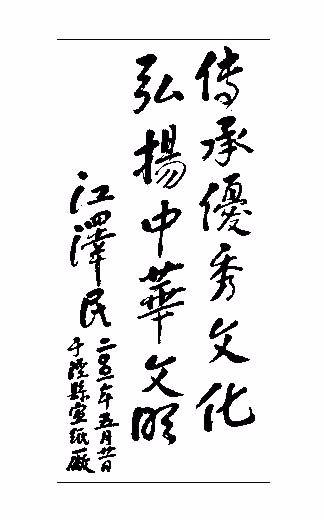 传承優秀文化
弘揚中華文明
江澤民
二〇〇一年五月廿日
于涇縣宣纸廠